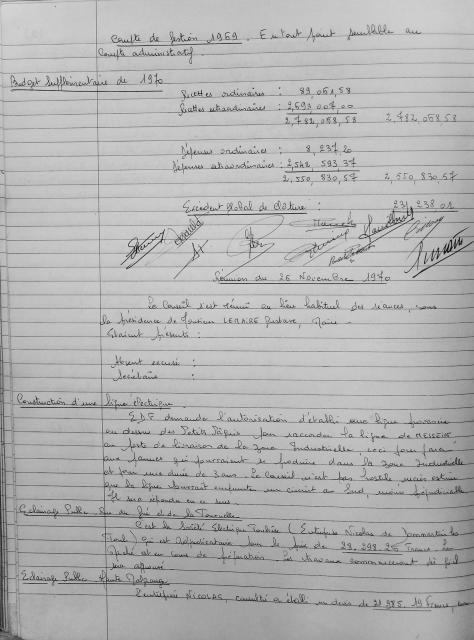 Compte de Gestion 1969. En tout point semblable au
Compte administratif.
Budget Supplémentaire de 1970
Recettes ordinaires : 89,051,58
Recettes extraordinaires : 2,693 007,00
2,782,058,58 2,782 058 58
Dépenses ordinaires : 8,237,20
Dépenses extraordinaires : 2,542, 593,37
2,550, 830,57 2,550, 830,57
Excédent global de clôture : 231 238 01
Réunion du 26 Novembre 1970
Le Conseil s'est réuni au lieu habituel des séances, sous
la présidence de Monsieur LEMAIRE Gustave, Maire -
Etaient présents :
Absent excusé :
Secrétaire :
Construction d'une ligne électrique
E.D.F. demande l'autorisation d'établir une ligne provisoire
au dessus des Petits pour raccorder la ligne de MESSEIN
au poste de livraison de la Zone Industrielle, ceci pour parer
aux pannes qui pourraient se produire dans la Zone Industrielle
et pour une durée de 3 ans. Le Conseil n'est pas hostile mais estime
que la ligne pourrait emprunter un circuit au Sud, moins préjudiciable
Il sera répondu en ce sens.
Eclairage Public Rue du Pré et de la
C'est la Société Electrique (Entreprise Nicolas de Dommartin les
Toul) qui est adjudicataire pour le prix de 29,298.26 Francs. Le
Marché est en cours de préparation. Les travaux commenceront dès qu'il
sera approuvé
Eclairage Public Haute
L'entreprise NICOLAS, consultée a établi un devis de 21 985,19 Francs